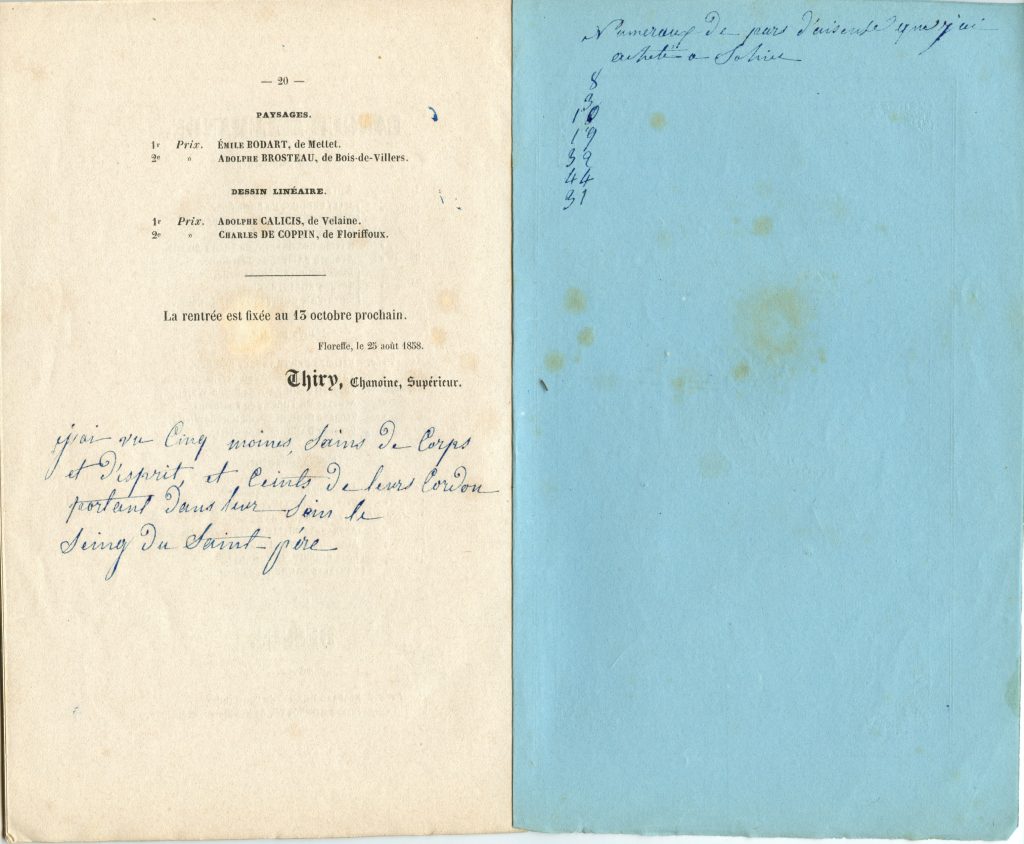 — 20 —
PAYSAGES.
1r Prix. ÉMILE BODART, de Mettet.
2e » ADOLPHE BROSTEAU, de Bois-de-Villers.
DESSIN LINÉAIRE.
1r Prix. ADOLPHE CALICIS, de Velaine.
2e » CHARLES DE COPPIN, de Floriffoux.
La rentrée est fixée au 13 octobre prochain.
Floreffe, le 25 août 1858.
Thiry, Chanoine, Supérieur.
j'ai vu Cinq moines, Sains de Corps
et d'esprit, et Ceints de leurs Cordon
portant dans leur Sein le
Seing du Saint-père
Numeraux de pars d'aisense que j'ai
acheté a
8
3
10
19
39
44
31